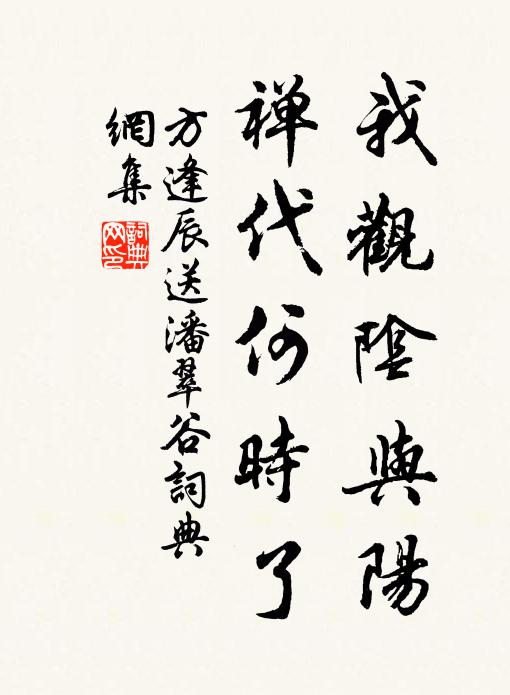 我觀陰與陽
禪代何時了
方逢辰送潘翠谷詞典
網集
詞典
网印